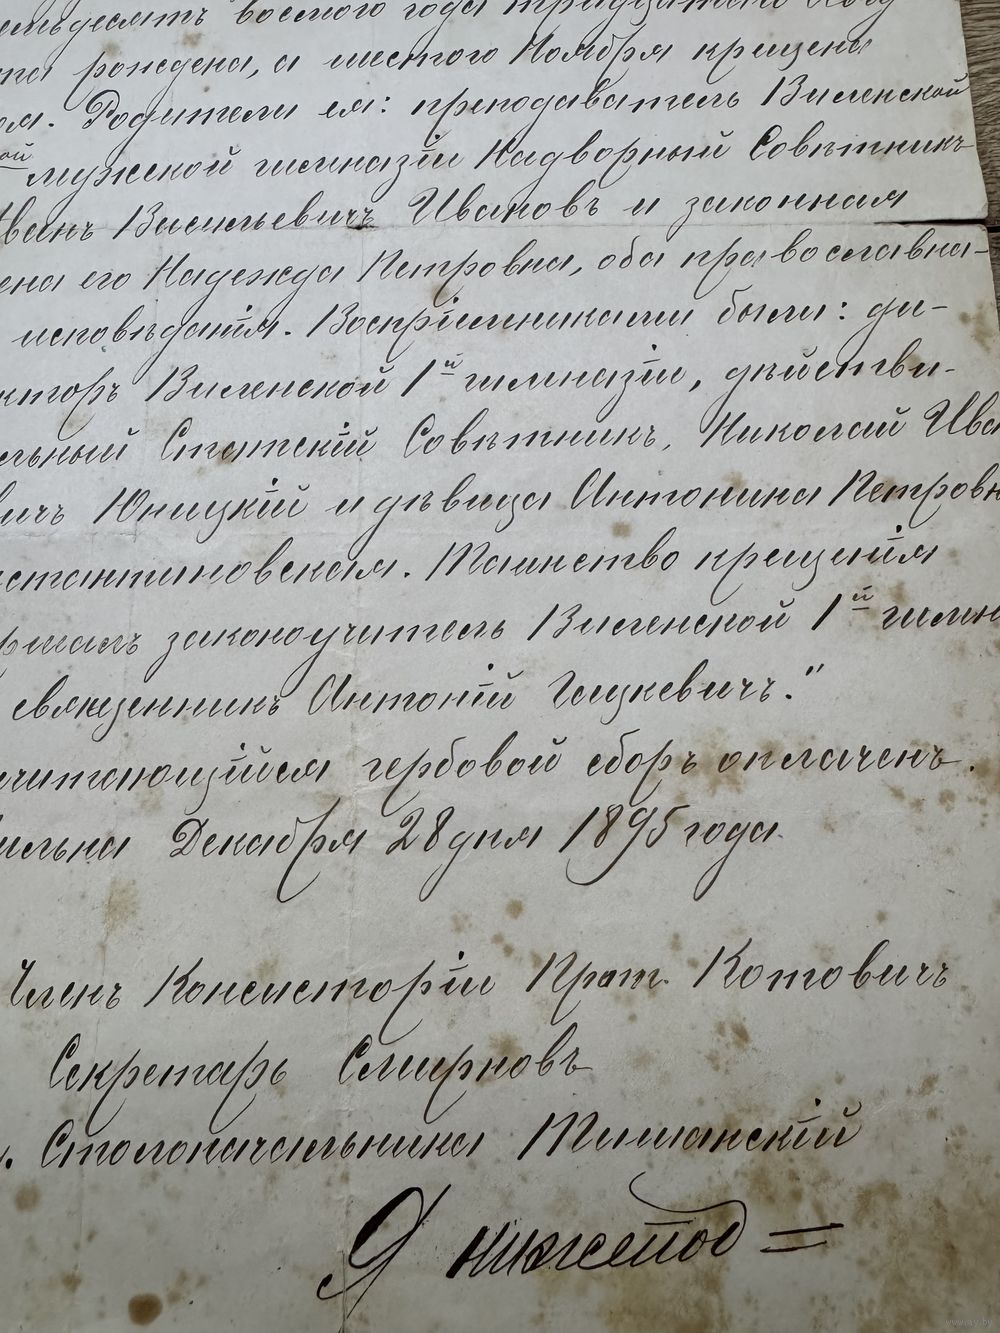 восмого года тридцатаго
рождена, а шестого Ноября крещена
Родители ея: преподаватель Виленской
ой мужской гимназіи Надворный Совѣтникъ
Иванъ Васильевичъ Ивановъ и законная
ена его Надежда Петровна, оба православна-
исповѣданія. Воспріемниками были: ди-
кторъ Виленской 1й гимназіи, дѣйстви-
льный Статскій Совѣтникъ, Николай Ива
вичъ Юницкій и дѣвица Антонина Петровн
стантиновская. Таинство крещенія
ршалъ законоучитель Виленской 1й гимн
священникъ Антоній Гацкевичъ."
читающійся гербовой сборъ оплаченъ.
ильна Декабря 28 дня 1895 года.
Членъ Консисторіи Прот. Котовичъ
Секретарь Смирновъ
Столоначальника
Я нижепод=
www.ay.by